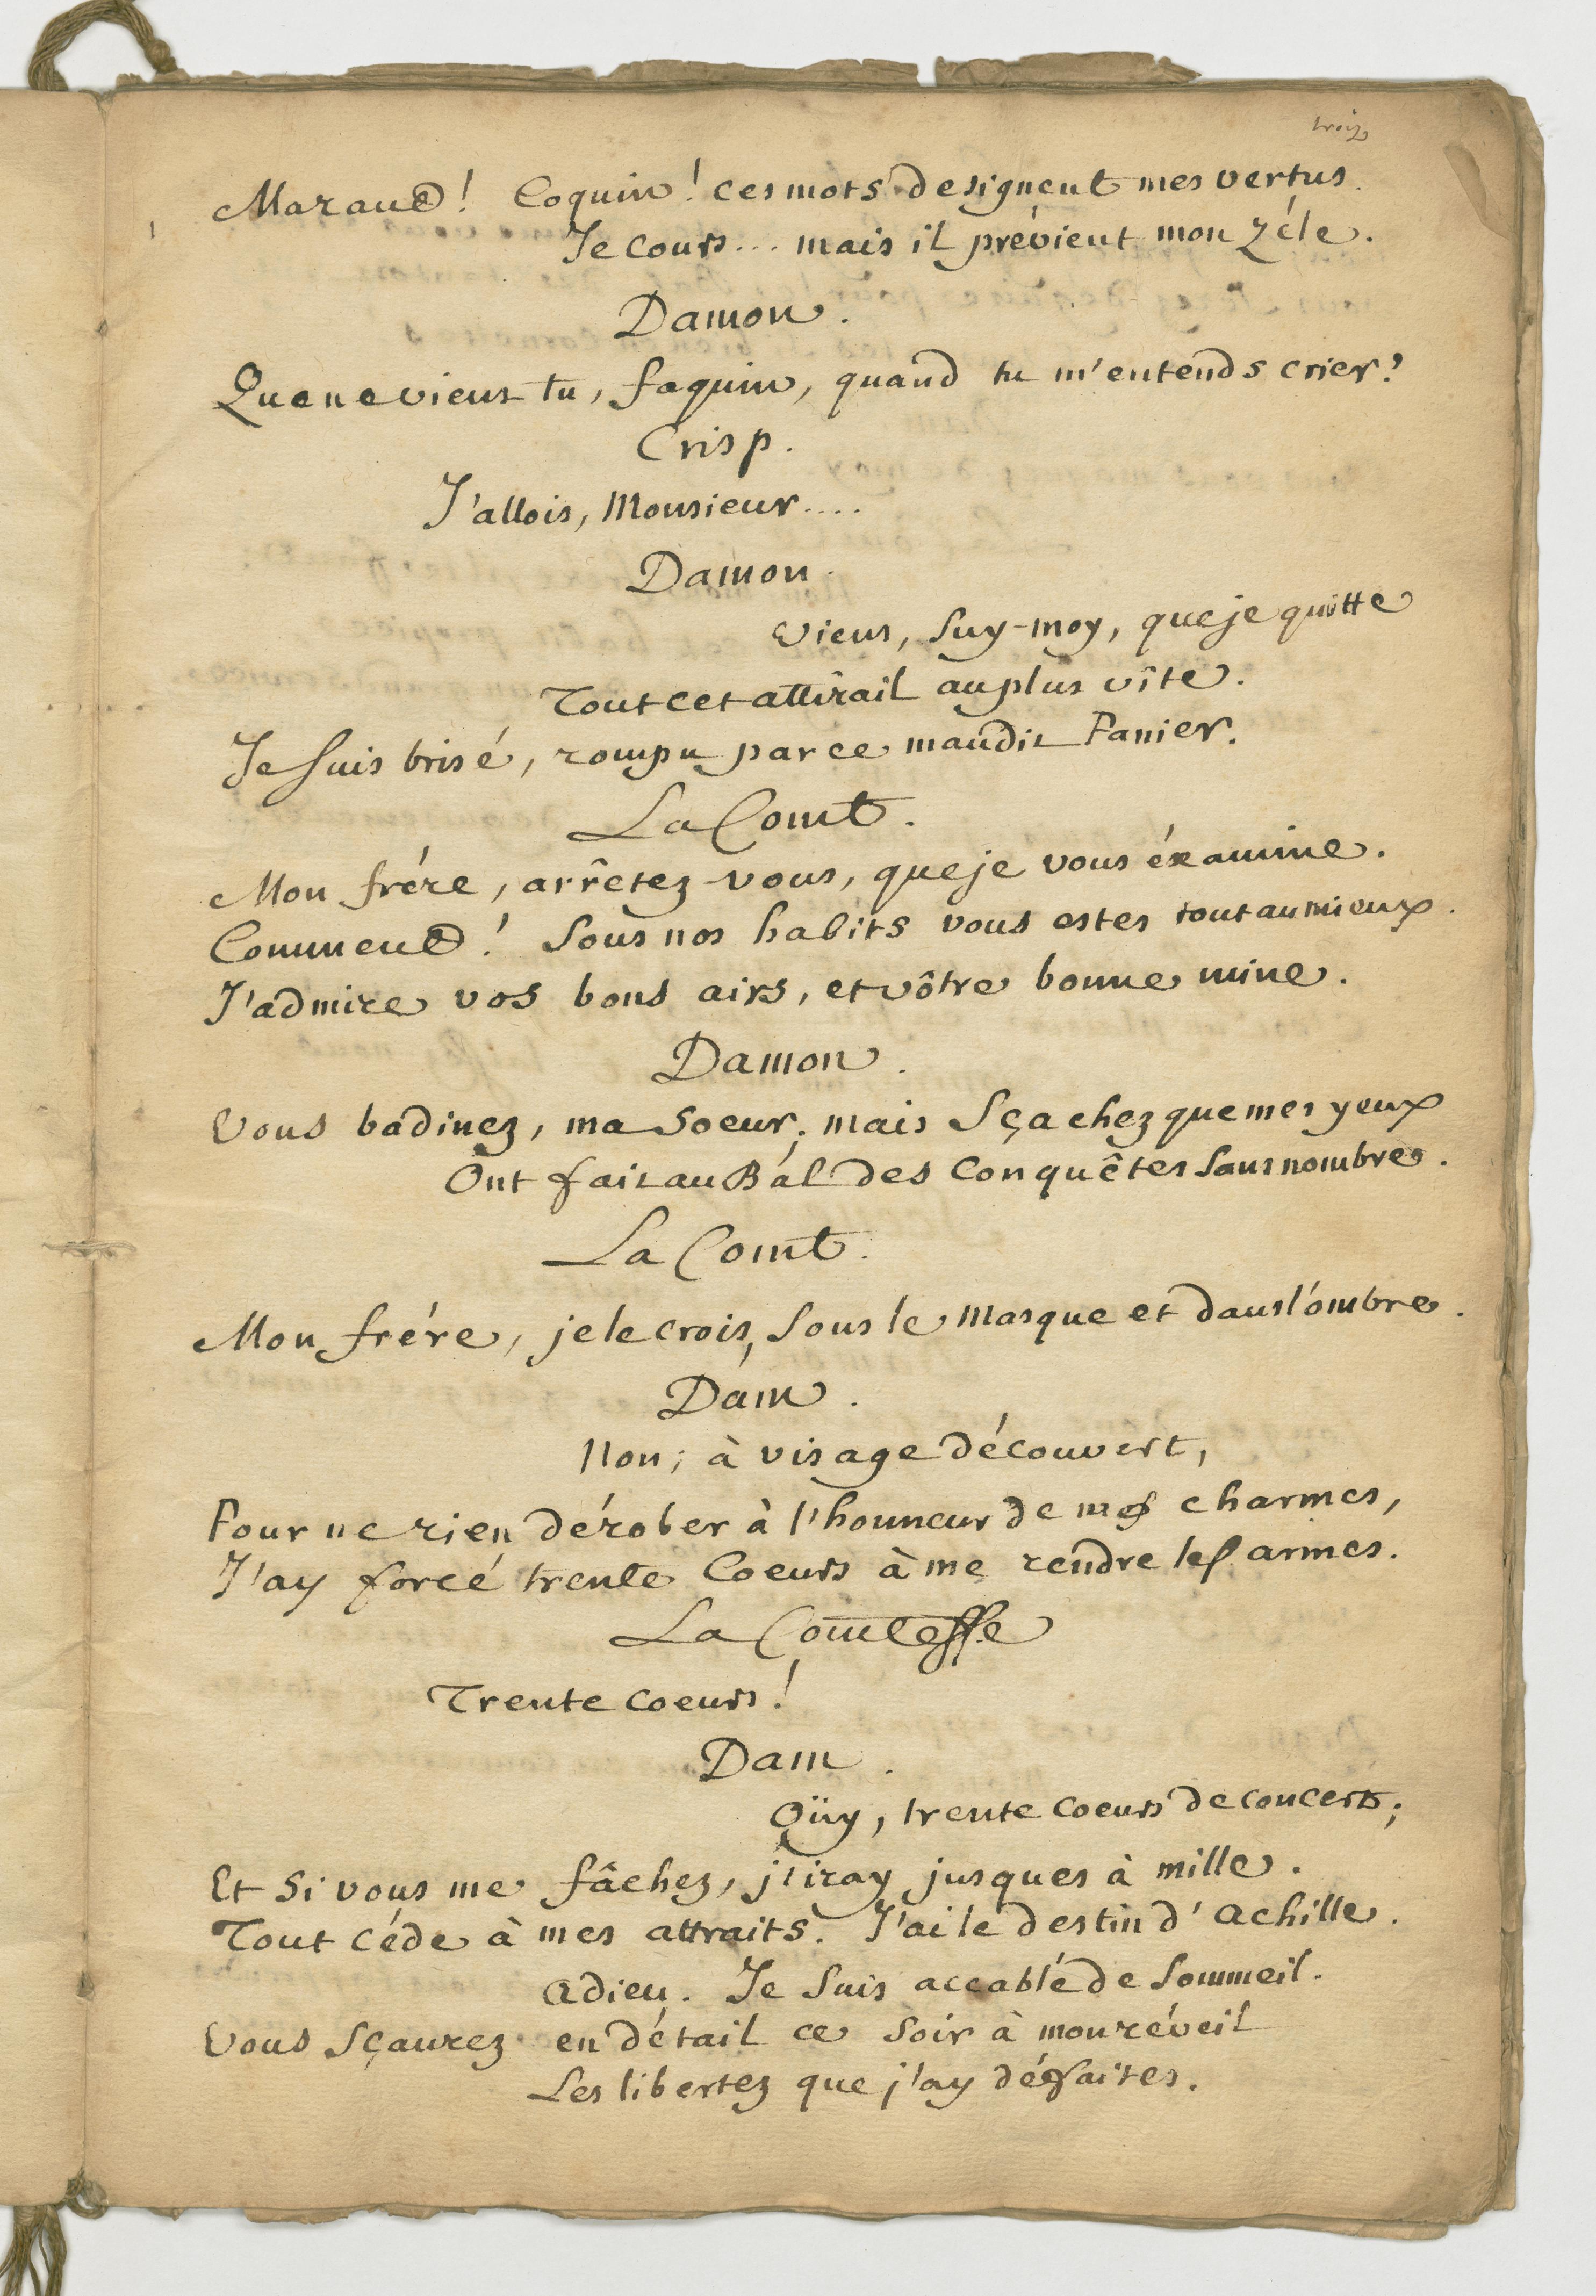 trois
Maraud! Coquin! ces mots designent mes vertus.
Je cours... mais il prévient mon zéle.
Damon.
Que ne viens tu, faquin, quand tu m'entends crier?
Crisp.
J'allois, Monsieur....
Damon.
viens, suy-moy, que je quitte
Tout cet attirail au plus vîte.
Je suis brisé, rompu par ce maudit Panier.
La Comt.
Mon frére, arrêtez-vous, que je vous éxamine.
Comment! Sous nos habits vous estes tout au mieux.
J'admire vos bons airs, et vôtre bonne mine.
Damon.
Vous badinez, ma soeur; mais sçachez que mes yeux
Ont fait au Bal des Conquêtes sans nombre.
La Comt.
Mon frére, je le crois, sous le masque et dans l'ombre.
Dam.
Non; à visage découvert,
Pour ne rien dérober à l'honneur de mes charmes,
J'ay forcé trente Coeurs à me rendre les armes.
La Comtesse
Trente coeurs!
Dam.
Oüy, trente coeurs de concert;
Et si vous me fâchez, j'iray jusques à mille.
Tout céde à mes attraits. J'ai le destin d'achille.
adieu. Je suis accablé de sommeil.
Vous sçaurez en détail ce soir à mon réveil
Les libertez que j'ay défaites.